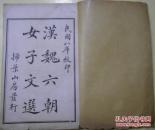 民國八年校印
漢魏六朝
女子文選
掃葉山房發行